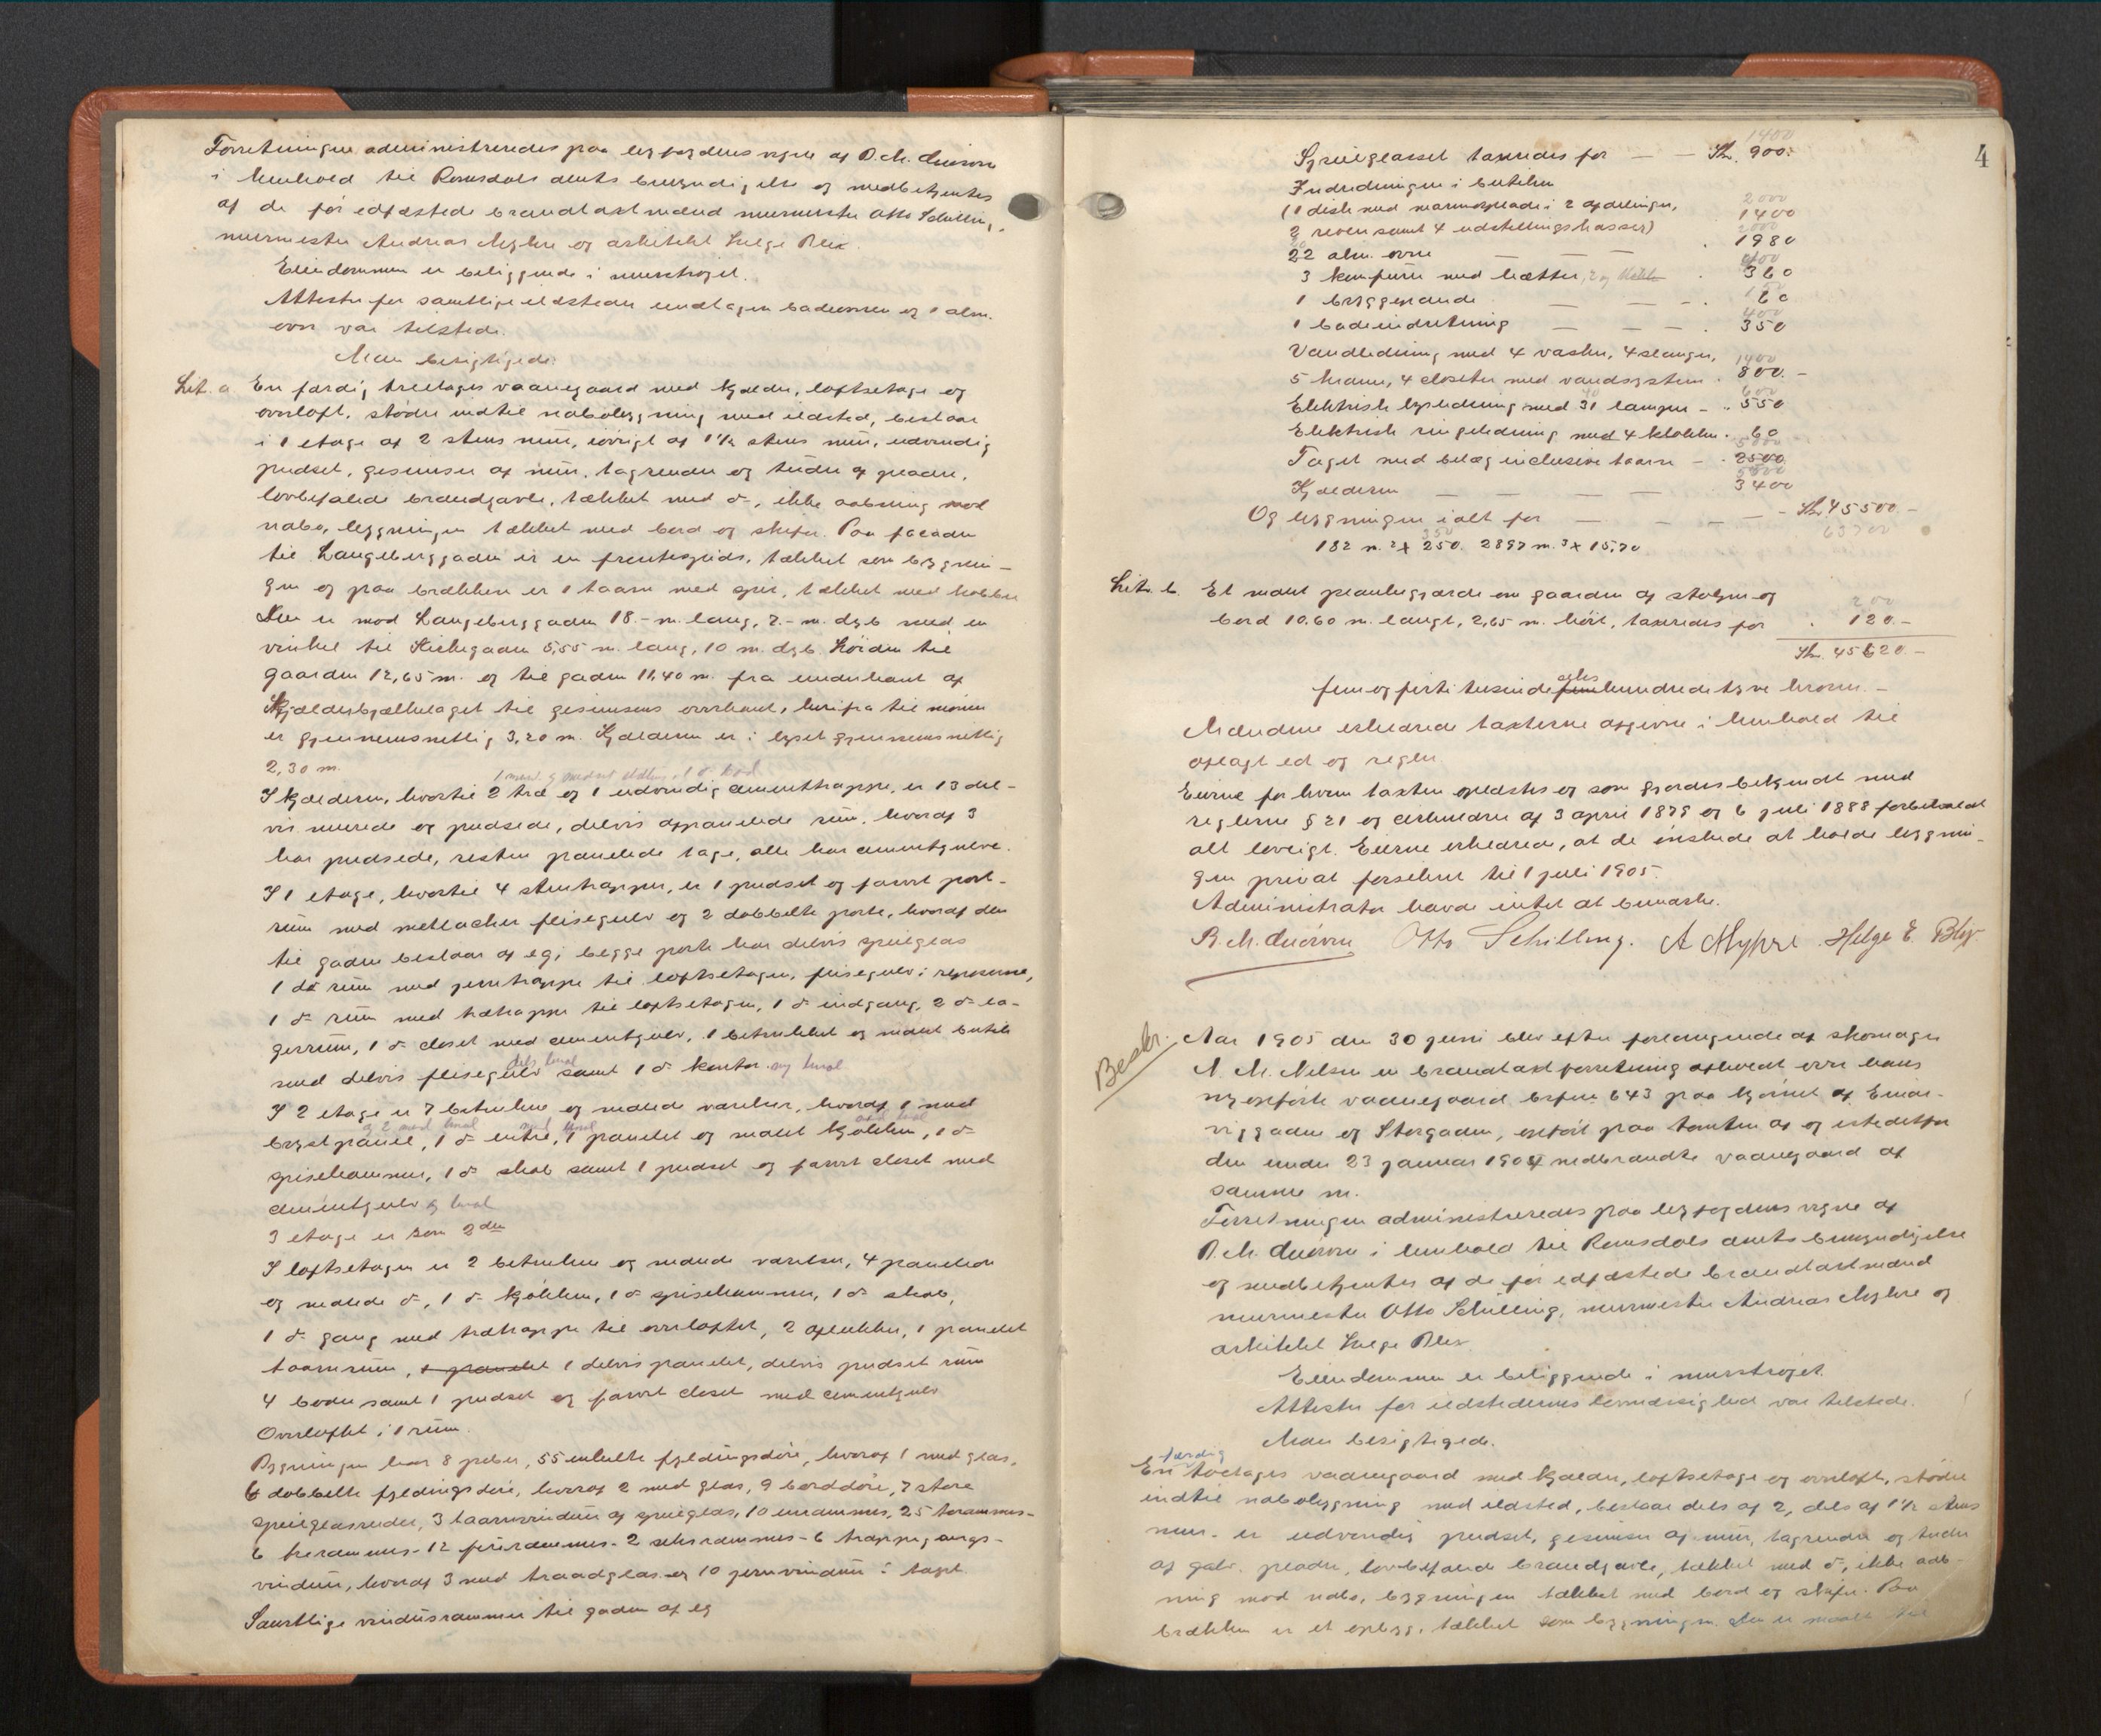 Forretningen administreredes paa byfogdens vegne af D. M.
i henhold til Romsdals amts bemyndigelse og medbetjentes
af de før edfæstede brandtakstmænd murmester Otto Schilling,
murmester Andreas Myhre og arkitekt Helge Blix.
Eiendommen er beliggende i murstrøget.
Attester for samtlige ildsteder undtagen badeovnen og 1 alm.
ovn var tilstede.
Man besigtigede:
Lit. a. En færdig treetages vaanegaard med kjelder, loftsetage og
overloft, støder indtil nabobygning med ildsted, bestaar
i 1 etage af 2 stens mur, øvrigt af 1½ stens mur, udvendig
pudset, gesimser af mur, tagrender og tuder af plader,
lovbefalede brandgavle, tækket med do, ikke aabning mod
nabo, bygningen tækket med bord og skifer. Paa facaden
til Langeberggaden er en frontespids, tækket som bygnin-
gen og paa brækken er 1 taarn med spir, tækket med kobber
Den er mod Langeberggaden 18.- m. lang, 7.- m. dyb med en
vinkel til Kirkegaden 5,55 m. lang, 10 m. dyb. Høiden til
gaarden 12,65 m. og til gaden 11,40 m. fra underkant af
kjelderbjelkelaget til gesimsens overkant, herifra til mønen
er gjennemsnetlig 3,20 m. Kjelderen er i lyset gjennemsnetlig
2,30 m.
I kjelderen, hvortil 2 træ og 1 udvendig cementtrappe, er 13 del-
vis murede og pudsede, delvis afpanelede rum, hvoraf 3
har pudsede, resten panelede tage, alle har cementgulve.
I 1 etage, hvortil 4 stentrapper, er 1 pudset og farvet port-
rum med metlacher flisegulv og 2 dobbelte porte, hvoraf den
til gaden bestaar af eg; begge porte har delvis speilglas
1 do rum med jerntrappe til loftsetagen, flisegulv i reposerne,
1 do rum med trætrappe til loftsetagen, 1 do indgang, 2 do la-
gerrum, 1 do closet med cementgulv, 1 betrukket og malet butik
med delvis flisegulv dels linol samt 1 do kontor og linol
I 2 etage er 7 betrukne og malede værelser, hvoraf 1 med
brystpanel, og 2 med linol 1 do entre, med linol 1 panelet og malet kjøkken, 1 do
spisekammer, 1 do skab samt 1 pudset og farvet closet med
cementgulv og linol
3 etage er som 2den
I loftsetagen er 2 betrukne og malede værelser, 4 panelede
og malede do, 1 do kjøkken, 1 do spisekammer, 1 do skab,
1 do gang med trætrappe til overloftet, 2 aflukker, 1 panelet
taarnrum, 1 panelet 1 delvis panelet, delvis pudset rum
4 boder samt 1 pudset og farvet closet med cementgulv
Overloftet i 1 rum.
Bygningen har 8 piber, 55 enkelte fyldingsdøre, hvoraf 1 med glas,
6 dobbelte fyldingsdøre, hvoraf 2 med glas, 9 borddøre, 7 store
speilglasruder, 3 taarnvinduer af speilglas, 10 enrammes, 25 torammes-
6 trerammes- 12 firerammes- 2 seksrammes- 6 trappegangs-
vinduer, hvoraf 3 med traadglas og 10 jernvinduer i taget
Samtlige vinduesrammer til gaden af eg
4
1400
Speilglasset takseres for — — Kr. 900.-
Indredningen i butiken
(1 disk med marmorplade i 2 afdelinger, 2000
2 reoler samt 4 udstillingskasser) 1400
2000
22 alm. ovne — — — . 1980
3 komfurer med hætter . 360
1 bryggepande — — — . 60
400
1 badeindretning — — — . 350
Vandledning med 4 vasker, 4 slanger, 1400
5 kraner, 4 closeter med vandsystem . 800.-
600
Elektrisk lysledning med 31 lamper — .. 550
Elektrisk ringeledning med 4 klokker . 60
Taget med belæg inclusive taarn — . 2500
Kjelderen — — — — 3400
Og bygningen ialt for — — — — Kr. 45500.-
63700
350
182 m.² x 250. 2897 m.³ x 15,70
Lit. b. Et malet plankegjærde om gaarden af stolper og 200
bord 10,60 m. langt, 2,65 m. høit, takseres for . 120.-
Kr. 45620.-
fem og firti tusinde fem seks hundrede tyve kroner.-
Mændene erklærede taksterne afgivne i henhold til
aflagt ed og regler.
Eierne for hvem taksten oplæstes og som gjordes bekjendt med
reglerne § 21 og cirkulærer af 3 april 1879 og 6 juli 1888 forbeholdt
alt lovligt. Eierne erklærede, at de ønskede at holde bygnin-
gen privat forsikret til 1 juli 1905.
Administrator havde intet at bemærke.
Otto Schilling. A Myhre. Helge E. Blix.
Beskr. Aar 1905 den 30 juni blev efter forlangende af skomager
N. M. Nelsen en brandtakstforretning afholdt over hans
nyopførte vaanegaard brfnr. 643 paa hjørnet af Einar-
viggaden og Storgaden, opført paa tomten af og istedetfor
den under 23 januar 1904 nedbrændte vaanegaard af
samme nr.
Forretningen administreredes paa byfogdens vegne af
D. M. i henhold til Romsdals amts bemyndigelse
og medbetjentes af de før edfæstede brandtakstmænd
murmester Otto Schilling, murmester Andreas Myhre og
arkitekt Helge Blix.
Eiendommen er beliggende i murstrøget.
Attester for ildstedernes lovmæssighed var tilstede.
Man besigtigede.
færdig
En toetages vaanegaard med kjelder, loftsetage og overloft, støder
indtil nabobygning med ildsted, bestaar dels af 2, dels af 1½ stens
mur, er udvendig pudset, gesimser af mur, tagrender og tuder
af galv. plader, lovbefalede brandgavle, tækket med do, ikke aab-
ning mod nabo, bygningen tækket med bord og skifer. Paa
brækken er et opbyg, tækket som bygningen. Den er maalt til